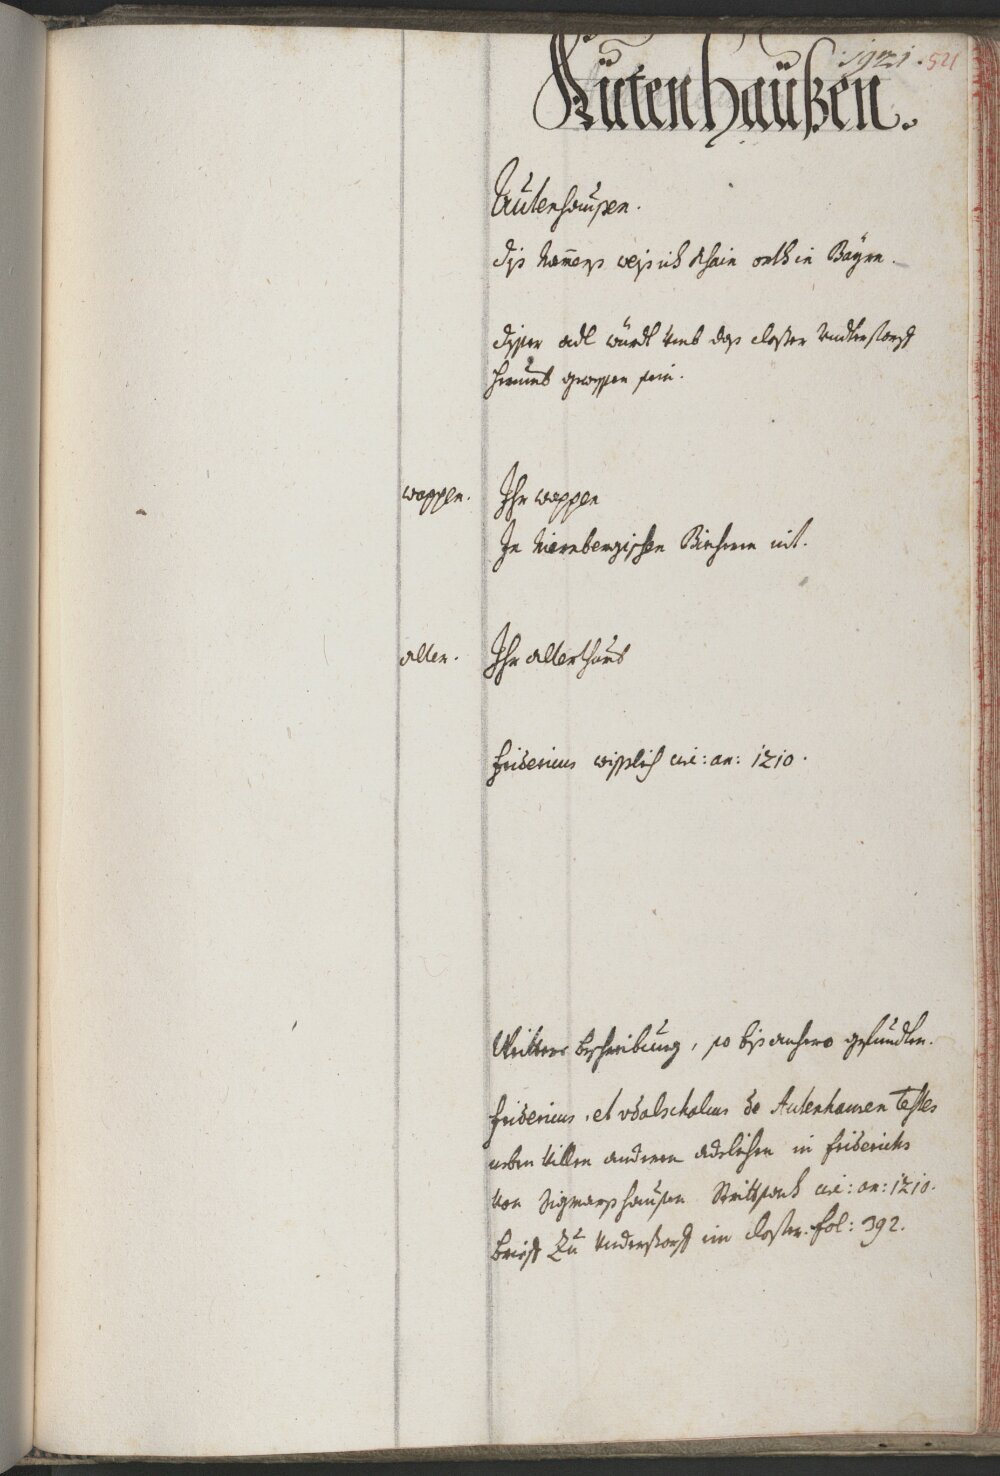 1921. 521
Autenhaüßen.
Autenhausen.
diß Namens weiß ich khain orth in Bayrn.
diser adl würdt umb das closter Undterstorff
herumb gewessen sein.
wappen. Ihr wappen
In Niernbergischen Biechern nit.
alter. Ihr alterthumb
fridericus wisslich circ: an: 1210.
Weittere beschreibung, so bis anhero gefundten.
fridericus, et vdalschalcus de Autenhausen Testes
neben villen anderen adelichen in friderichs
von Sigmarshausen Brieff circ: an: 1210.
brieff zu Understorff im closter. fol: 392.